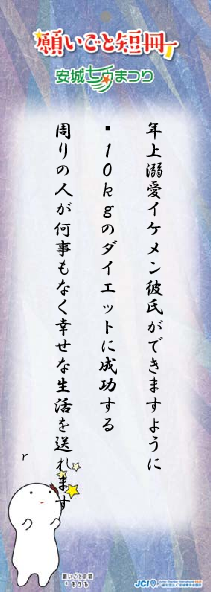 願いごと短冊
安城七夕まつり
年上溺愛イケメン彼氏ができますように
-10kgのダイエットに成功する
周りの人が何事もなく幸せな生活を送れます
r
願いごと短冊
JCI